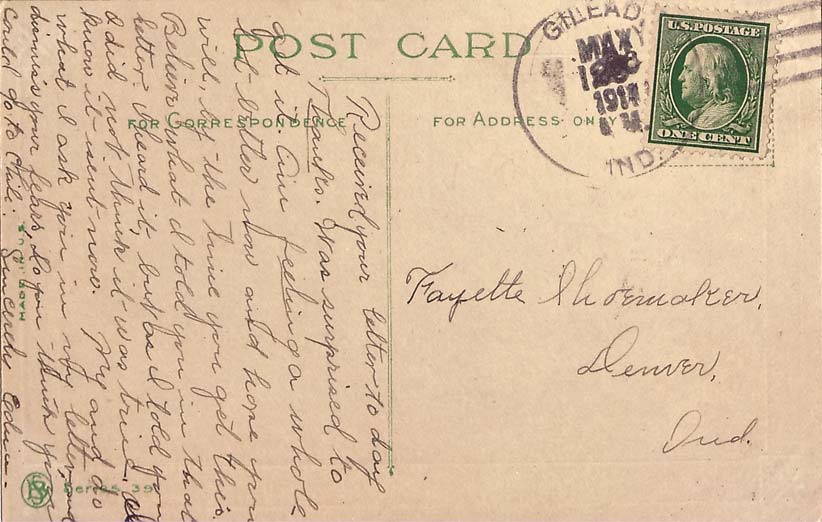 POST CARD
FOR CORRESPONDENCE
FOR ADDRESS ONLY
GILEAD,
MAY
12
1911
M.
IND.
U.S. POSTAGE
ONE CENT
Fayette Shoemaker,
Denver,
Ind.
Received your letter to day
Thanks. Was surprised to
get it. Am feeling a whole
lot better now and hope you
will, by the time you get this.
Believe what I told you in that
letter. I heard it, but as I told you
I did not think it was true. I
know it isent now. Try and do
what I ask you in my letter, and
dismiss your fears. Do you think you
could go to Chili. Sincerely Edna-
MADE IN U S
Series 39